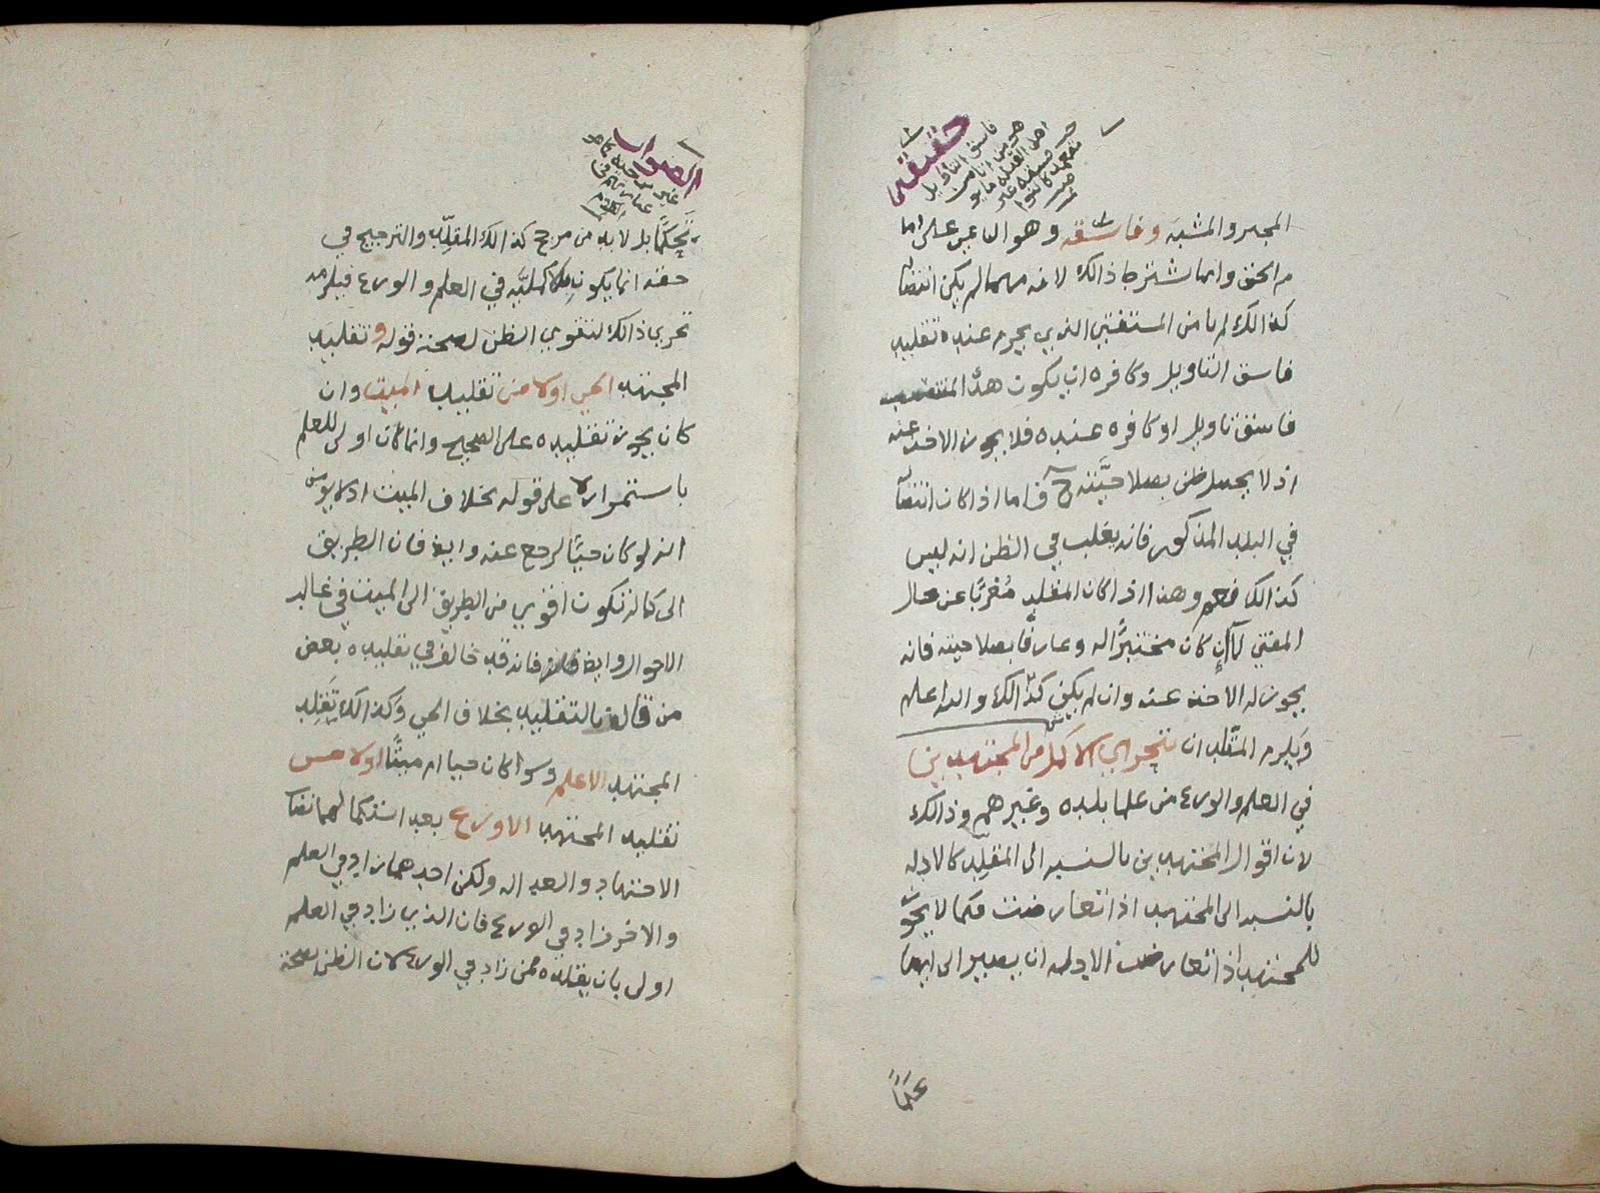 حقيقة
فاسق التأويل
هو من اتا من
اهل القبلة ما يو
المجبر والمشبه وفاسقه وهو الباغي على امام
م الحق وانما اشترطنا ذالك لانه مهما لم يكن انتصابه
كذالك لم يامن المستفتي الذي يحرم عنده تقليد
فاسق التاويل وكافره ان يكون هذا المنتصب
فاسق تاويل او كافره عنده فلا يجوز الاخذ عنه
اذ لا يحصل ظن بصلاحيته ح فاما اذا كان انتصابه
في البلد المذكور فانه يغلب في الظن انه ليس
كذالك فعمر وهذا اذا كان المقلد مُغربًا عن حال
المفتي فان كان مختبرًا له وعارفًا بصلاحيته فانه
يجوز له الاخذ عنه وان لم يكن كذالك والله اعلم
ويلزم المقلد ان يتحرى الاكمل من المجتهدين
في العلم والورع من علما بلده وغيرهم وذالك
لان اقوال المجتهدين بالنسبه الى المقلد كالادله
بالنسبه الى المجتهد اذا تعارضت فكما لا يجوز
للمجتهد اذا تعارضت الادله ان يصير الى ايها
الصواب
تحكمًا بل لا بد من مرجح كذالك المقلد والترجيح في
حقه انما يكون بكماليه في العلم والورع فيلزمه
تحري ذالك لتقوي الظن لصحة قوله وتقليد
المجتهد الحي اولا من تقليد الميت وان
كان يجوز تقليده على الصحيح وانما كان اولى للعلم
باستمراره على قوله بخلاف الميت اذ لا يومن
انه لو كان حيًا لرجع عنه وايضا فان الطريق
الى كماله تكون اقوى من الطريق الى الميت في غالب
الاحوال وايضا فانه قد خالف في تقليده بعض
من قال بالتقليد بخلاف الحي وكذالك تقليد
المجتهد الاعلم وسوا كان حيا ام ميتًا اولا من
تقليد المجتهد الاورع بعد استكمالهما نصاب
الاجتهاد والعداله ولكن احدهما زاد في العلم
والاخر زاد في الورع فان الذي زاد في العلم
اولى بان يقلده ممن زاد في الورع لان الظن بصحة